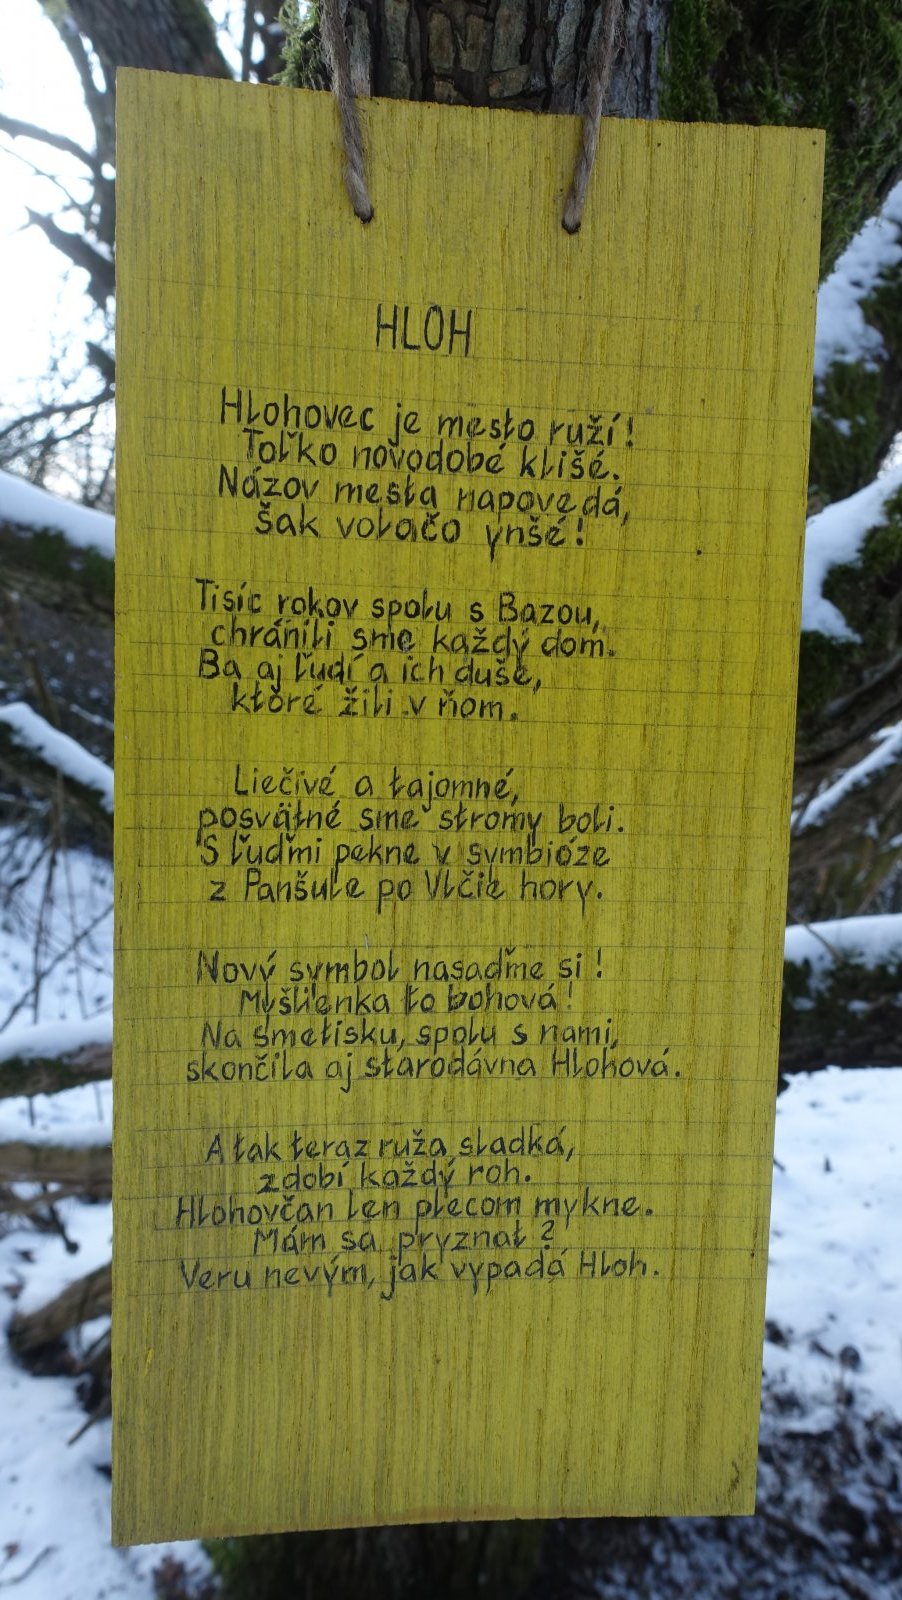 HLOH
Hlohovec je mesto ruží!
Toľko novodobé klišé.
Názov mesta napovedá,
šak voľačo ynšé!
Tisíc rokov spolu s Bazou,
chránili sme každý dom.
Ba aj ľudí a ich duše,
ktoré žili v ňom.
Liečivé a tajomné,
posvätné sme stromy boli.
S ľuďmi pekne v symbióze
z Panšule po Vlčie hory.
Nový symbol nasaďme si!
Myšlienka to bohová!
Na smetisku, spolu s nami,
skončila aj starodávna Hlohová.
A tak teraz ruža sladká,
zdobí každý roh.
Hlohovčan len plecom mykne.
Mám sa pryznat?
Veru nevým, jak vypadá Hloh.